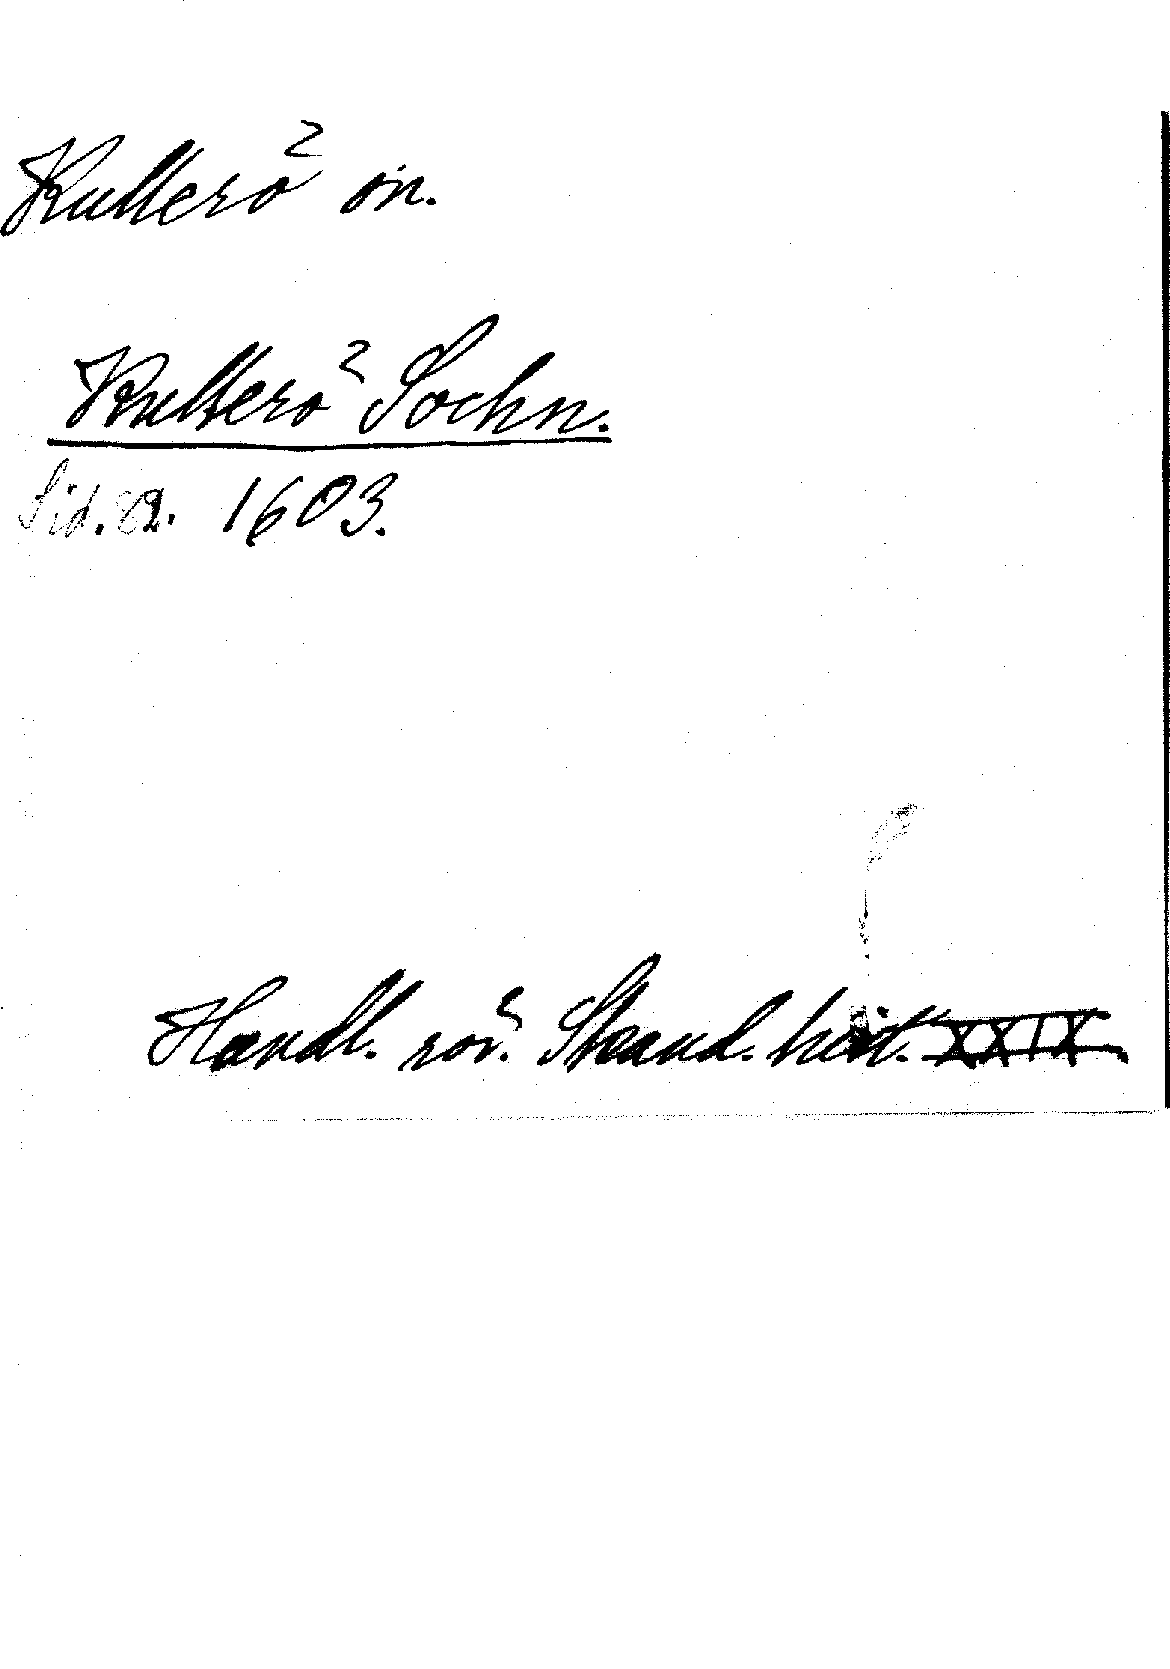 Kulleröˀ ön.
Kulleröˀ Sochn.
Sid. 82. 1603.
Handl. rör. Skand. hist. XXIX